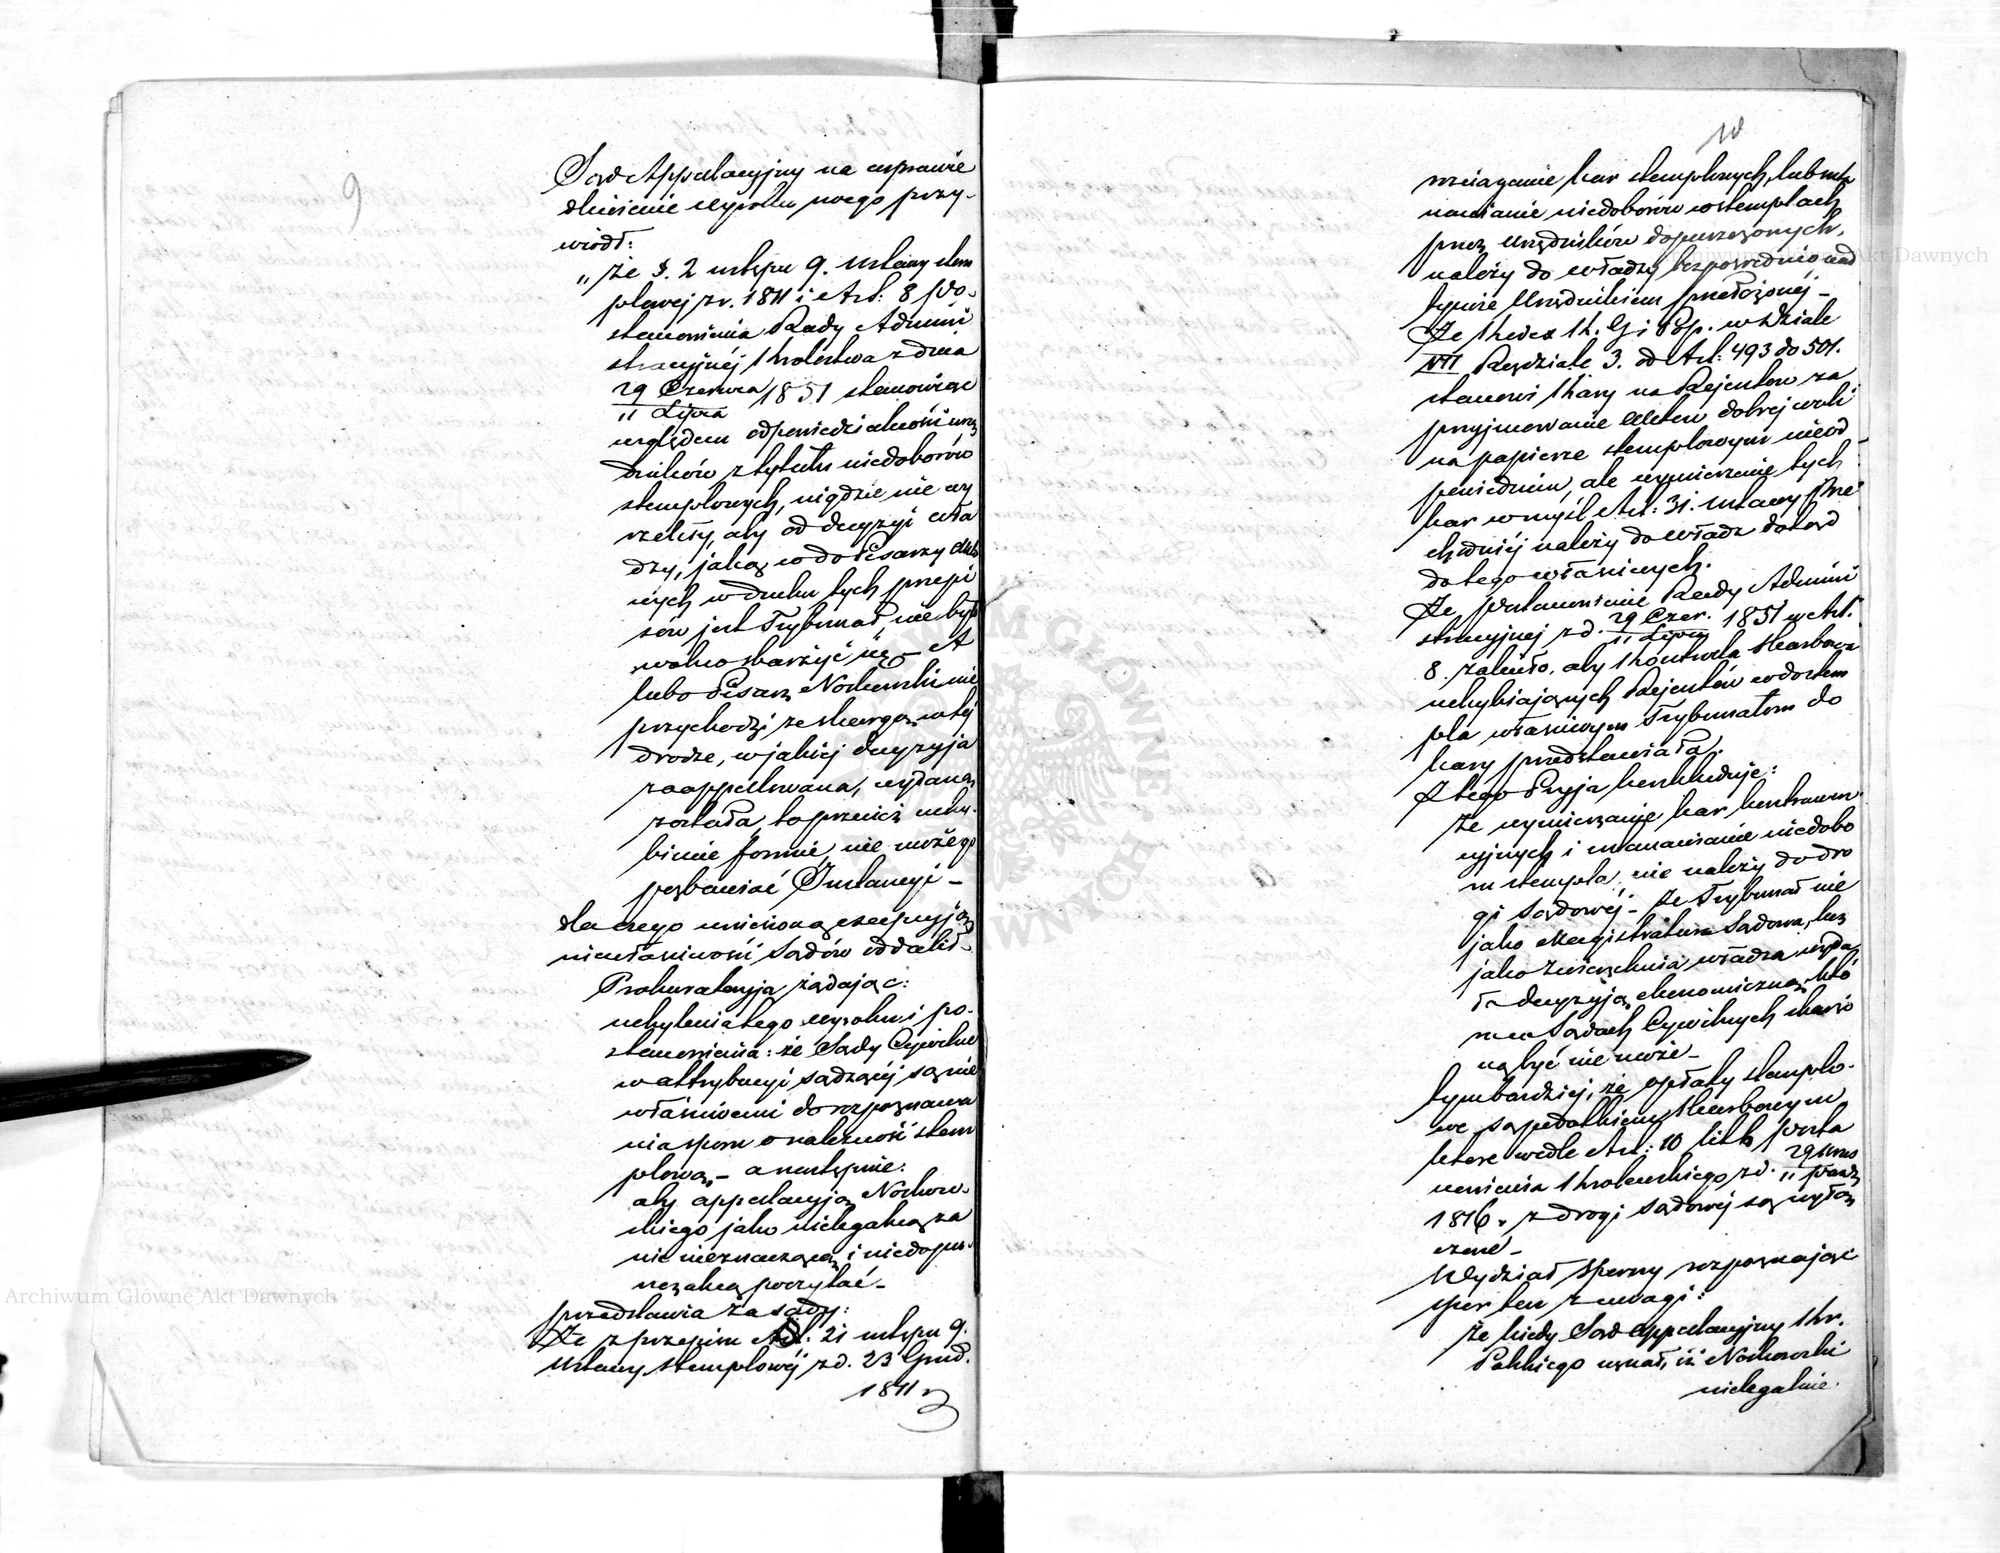 9
Sąd Appellacyjny na usprawie
dliwienie wyroku swego przy-
wiódł:
„że §. 2 ustępu 9. ustawy stem
plowej z r. 1811 i Art: 8 po-
stanowienia Rady Admini
stracyjnéj Królestwa z dnia
29 Czerwca
11 Lipca 1851 stanowiąc
względem odpowiedzialności urzę
dników z tytułu niedoborów
stemplowych, nigdzie nie wy
rzekły, aby od decyzyi wła
dzy, jaką co do Pisarzy Akto
wych w duchu tych przepi
sów jest Trybunał, nie było
wolno skarżyć się – A
lubo Pisarz Nochowski nie
przychodzi ze skargą w tej
drodze, w jakiéj decyzyja
zaappellowana, wydaną
została, to przecież uchy-
bienie formie, nie może go
pozbawiać Instancyi –
dla czego wniesioną excepcyją
niewłaściwości Sądów oddalił.
Prokuratoryja żądając:
uchylenia tego wyroku i po-
stanowienia: że Sądy Cywilne
w attrybucyi sądzącéj są nie
właściwemi do rozpoznawa
nia sporu o należność stem
plową, – a następnie:
aby appellacyją Nochow-
skiego jako nielegalną za
nic nieznaczącą i niedopu-
szczalną poczytać –
przedstawia zasady:
Że z przepisu §: 21 ustępu 9.
Ustawy stemplowéj z d. 23 Grud.
1811 r
10
ściąganie kar stemplowych, lub usta
nawianie niedoborów w stemplach
przez Urzędników dopuszczonych,
należy do władzy bezpośrednio nad
tymże Urzędnikiem przełożonéj –
Że Kodex K. G. i Pop. w Dziale
VII Rozdziale 3. od Art: 493 do 501.
stanowi kary na Rejentów za
przyjmowanie Aktów dobrej woli
na papierze stemplowym nieod
powiednim, ale wymierzenie tych
kar w myśl Art: 31. ustawy prze
chodniéj należy do władz dotąd
do tego właściwych.
Że postanowienie Rady Admini
stracyjnej z d. 29 Czer.
11 Lipca 1851 w Art.
8. zaleciło, aby Kontrola Skarbowa
uchybiających Rejentów co do stem
pla właściwym Trybunałom do
kary przedstawiała.
Z tego Pryja konkluduje:
że wymierzanie kar kontrawen
cyjnych i ustanawianie niedobo
ru stempla, nie należy do dro
gi sądowéj – że Trybunał nie
jako Magistratura Sądowa, lecz
jako zwierzchnia władza wyda
ła decyzyją ekonomiczną, któ
ra w Sądach Cywilnych skarżo
ną być nie może –
tymbardziej, że opłaty stemplo-
we są podatkiem Skarbowym
które wedle Art: 10 litt. posta
nowienia Królewskiego z d. 29 Wrześ
11 Paźdz
1816 r. z drogi sądowéj są wyłą
czone –
Wydział Sporny rozpoznając
spór ten z uwagi:
że kiedy Sąd Appellacyjny Kr.
Polskiego uznał, iż Nochowski
nielegalnie
Archiwum Główne Akt Dawnych
Archiwum Główne Akt Dawnych